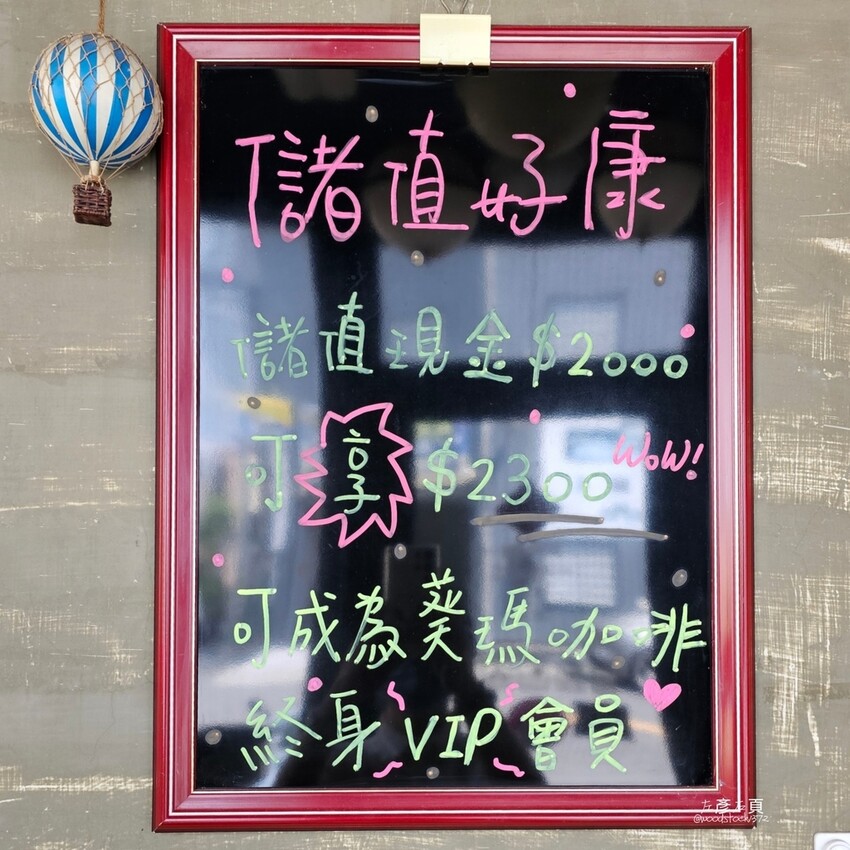 儲值好康
儲值現金$2000
可享$2300 WoW!
可成為葵瑪咖啡
終身VIP會員
左彥右頁
@woodstock372